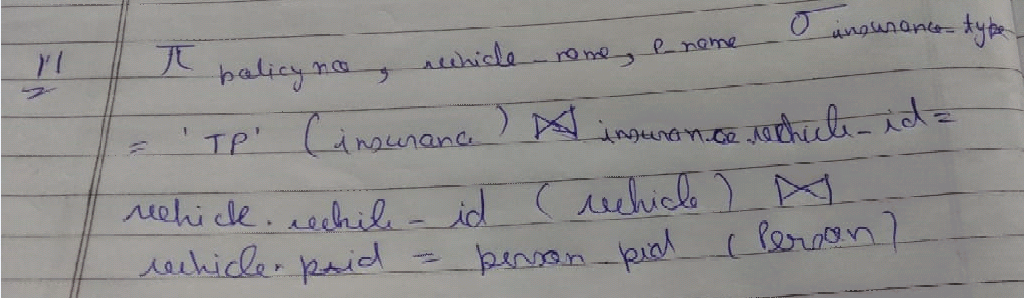 11 π policy no, vehicle-name, p name σ insurance-type
= 'TP' (insurance) ⋈ insurance.vehicle-id =
vehicle.vehile-id (vehicle) ⋈
vehicle.pid = person pid (Person)